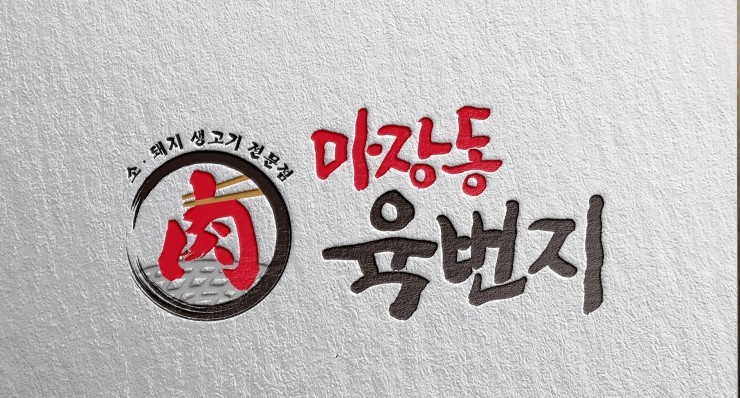 소·돼지 생고기 전문점
肉
마장동
육번지